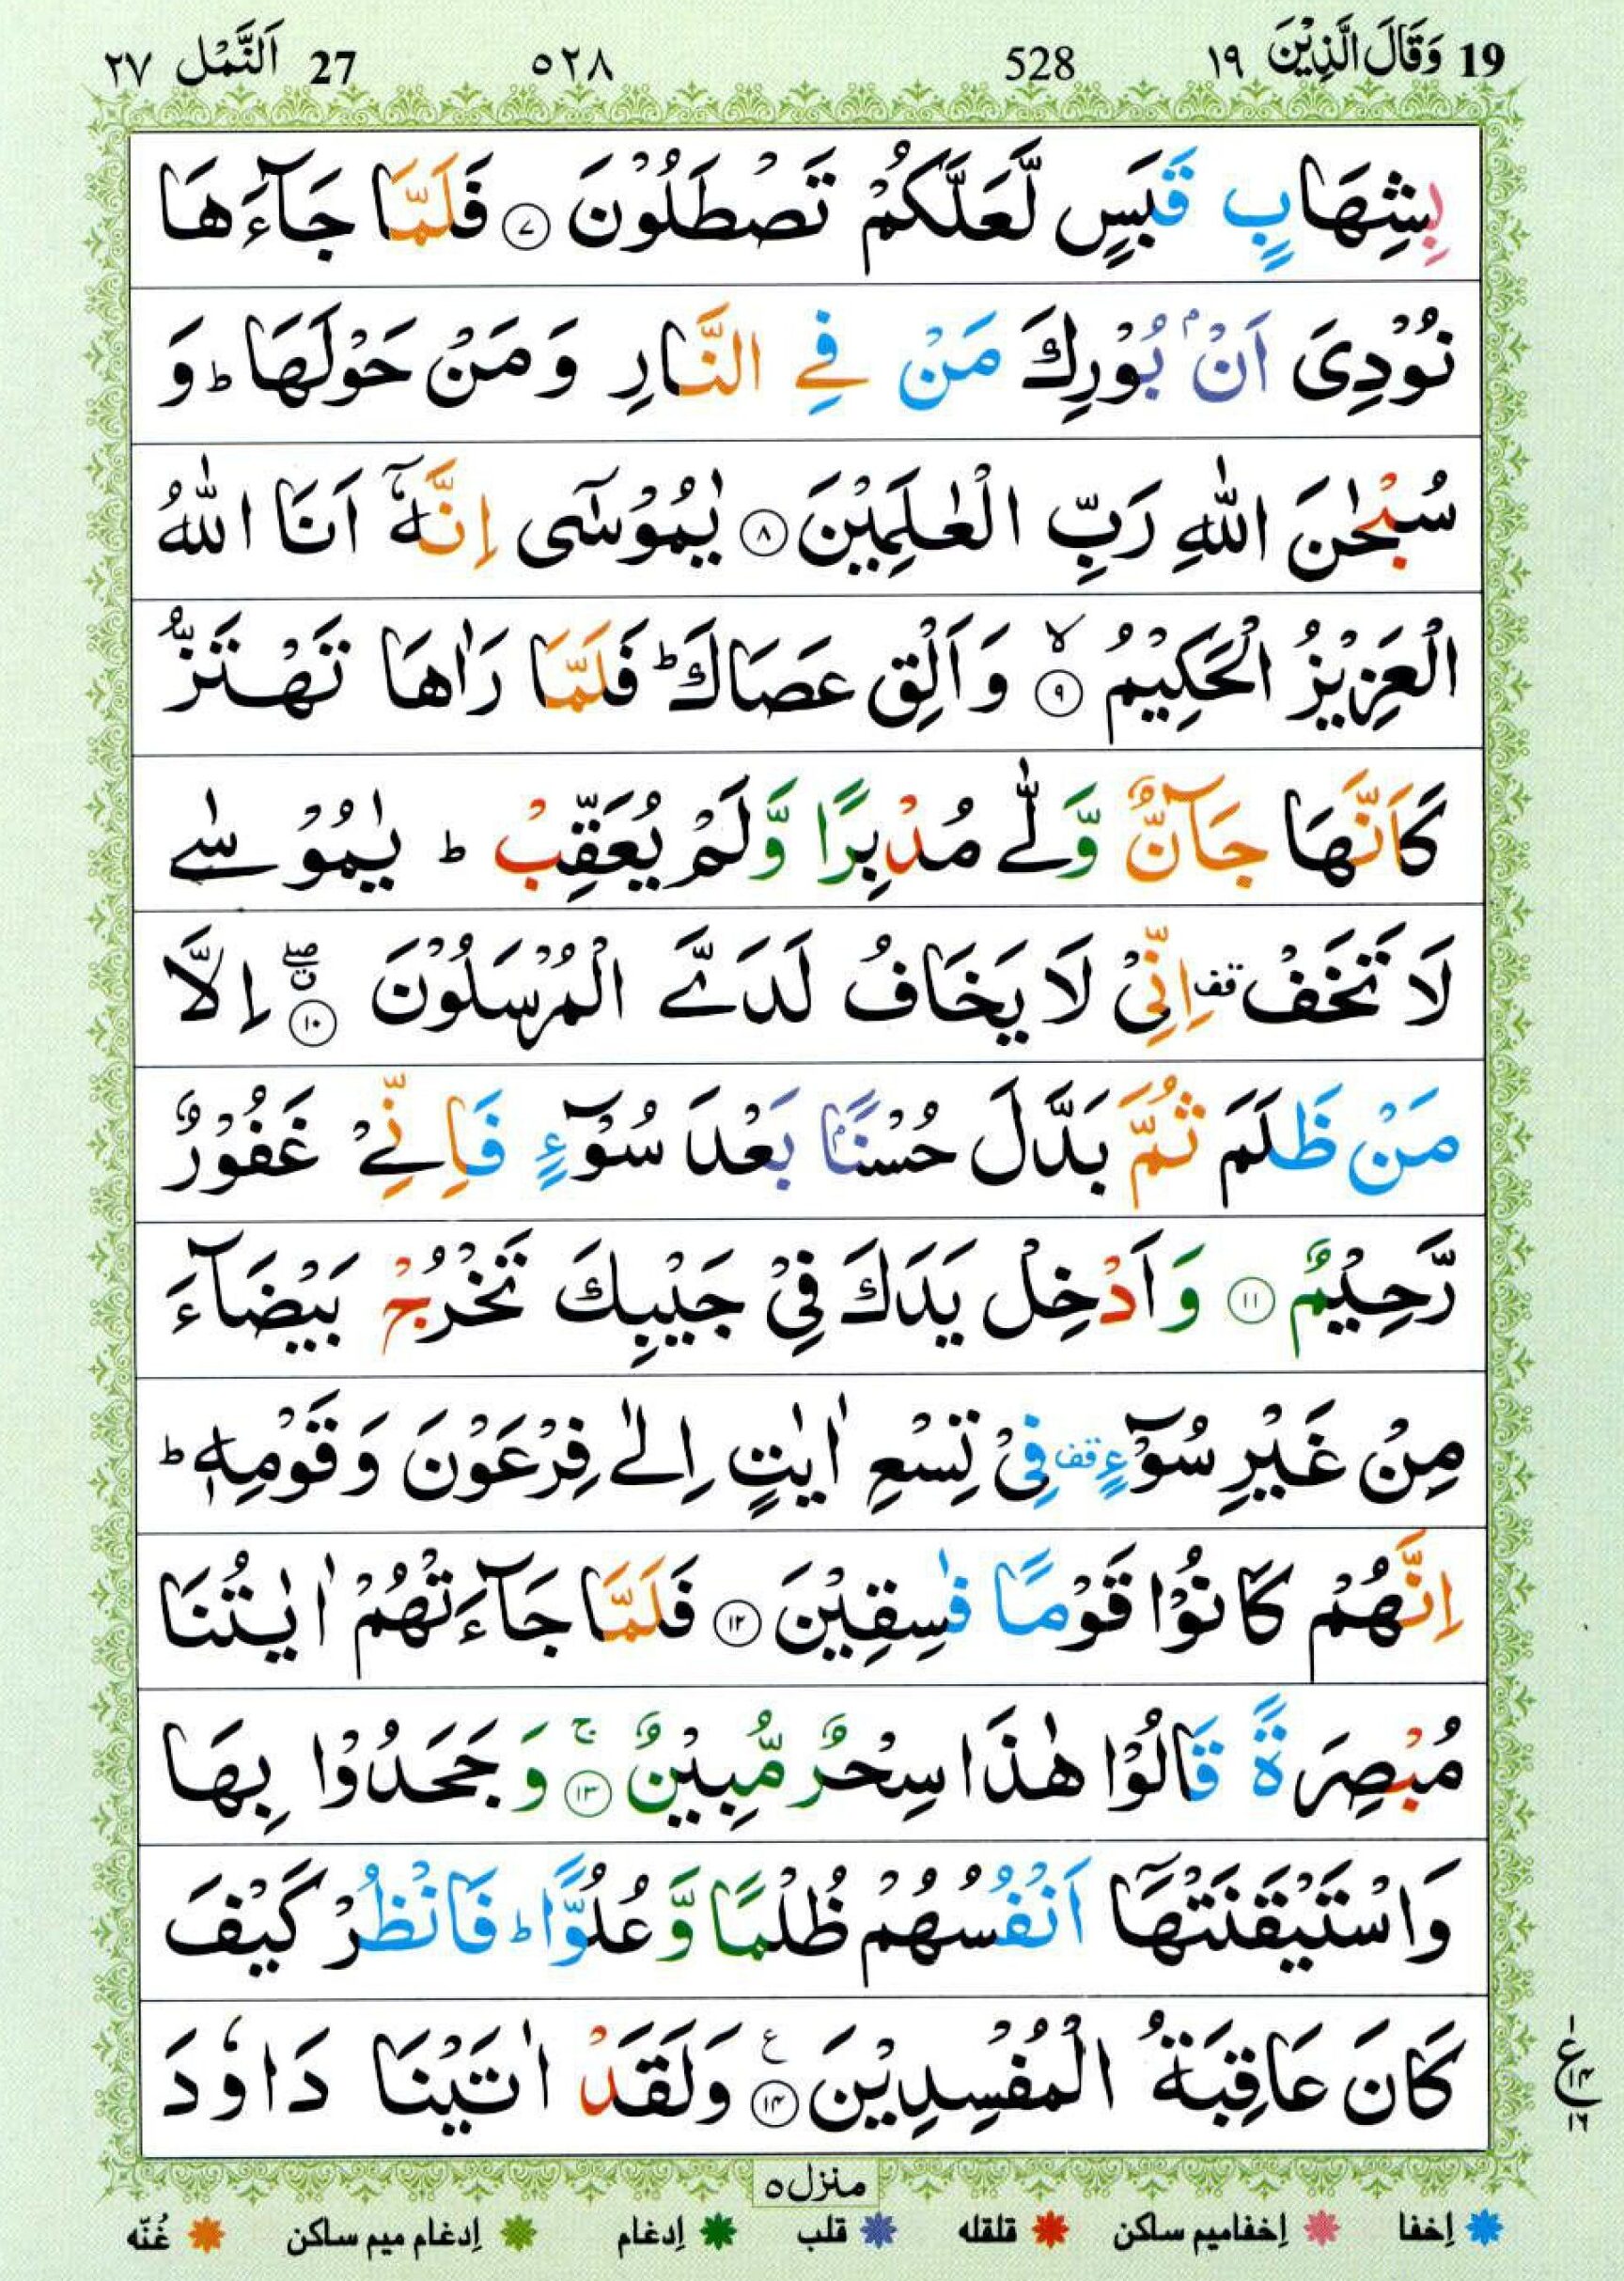 19 وَقَالَ الَّذِيْنَ ١٩ 528 ٥٢٨ 27 اَلنَّمْل ٢٧
بِشِهَابٍ قَبَسٍ لَّعَلَّكُمْ تَصْطَلُوْنَ ٧ فَلَمَّا جَآءَهَا
نُوْدِیَ اَنْۢ بُوْرِكَ مَنْ فِی النَّارِ وَ مَنْ حَوْلَهَا ؕ وَ
سُبْحٰنَ اللّٰهِ رَبِّ الْعٰلَمِيْنَ ٨ يٰمُوْسٰۤی اِنَّهٗۤ اَنَا اللّٰهُ
الْعَزِيْزُ الْحَكِيْمُ ۙ ٩ وَ اَلْقِ عَصَاكَ ؕ فَلَمَّا رَاٰهَا تَهْتَزُّ
كَاَنَّهَا جَآنٌّ وَّلّٰی مُدْبِرًا وَّلَمْ يُعَقِّبْ ؕ يٰمُوْسٰی
لَا تَخَفْ قف اِنِّیْ لَا يَخَافُ لَدَیَّ الْمُرْسَلُوْنَ ۖ ق ١٠ اِلَّا
مَنْ ظَلَمَ ثُمَّ بَدَّلَ حُسْنًۢا بَعْدَ سُوْٓءٍ فَاِنِّیْ غَفُوْرٌ
رَّحِيْمٌ ١١ وَ اَدْخِلْ يَدَكَ فِیْ جَيْبِكَ تَخْرُجْ بَيْضَآءَ
مِنْ غَيْرِ سُوْٓءٍ قف فِیْ تِسْعِ اٰيٰتٍ اِلٰی فِرْعَوْنَ وَ قَوْمِهٖ ؕ
اِنَّهُمْ كَانُوْا قَوْمًا فٰسِقِيْنَ ١٢ فَلَمَّا جَآءَتْهُمْ اٰيٰتُنَا
مُبْصِرَةً قَالُوْا هٰذَا سِحْرٌ مُّبِيْنٌ ۚ ١٣ وَ جَحَدُوْا بِهَا
وَاسْتَيْقَنَتْهَاۤ اَنْفُسُهُمْ ظُلْمًا وَّ عُلُوًّا ؕ فَانْظُرْ كَيْفَ
كَانَ عَاقِبَةُ الْمُفْسِدِيْنَ ع ١٤ وَلَقَدْ اٰتَيْنَا دَاوٗدَ
ع ١ ١٤ ١٦
منزل ٥
إخفا إخفاميم ساكن قلقله قلب إدغام إدغام ميم ساكن غُنّه